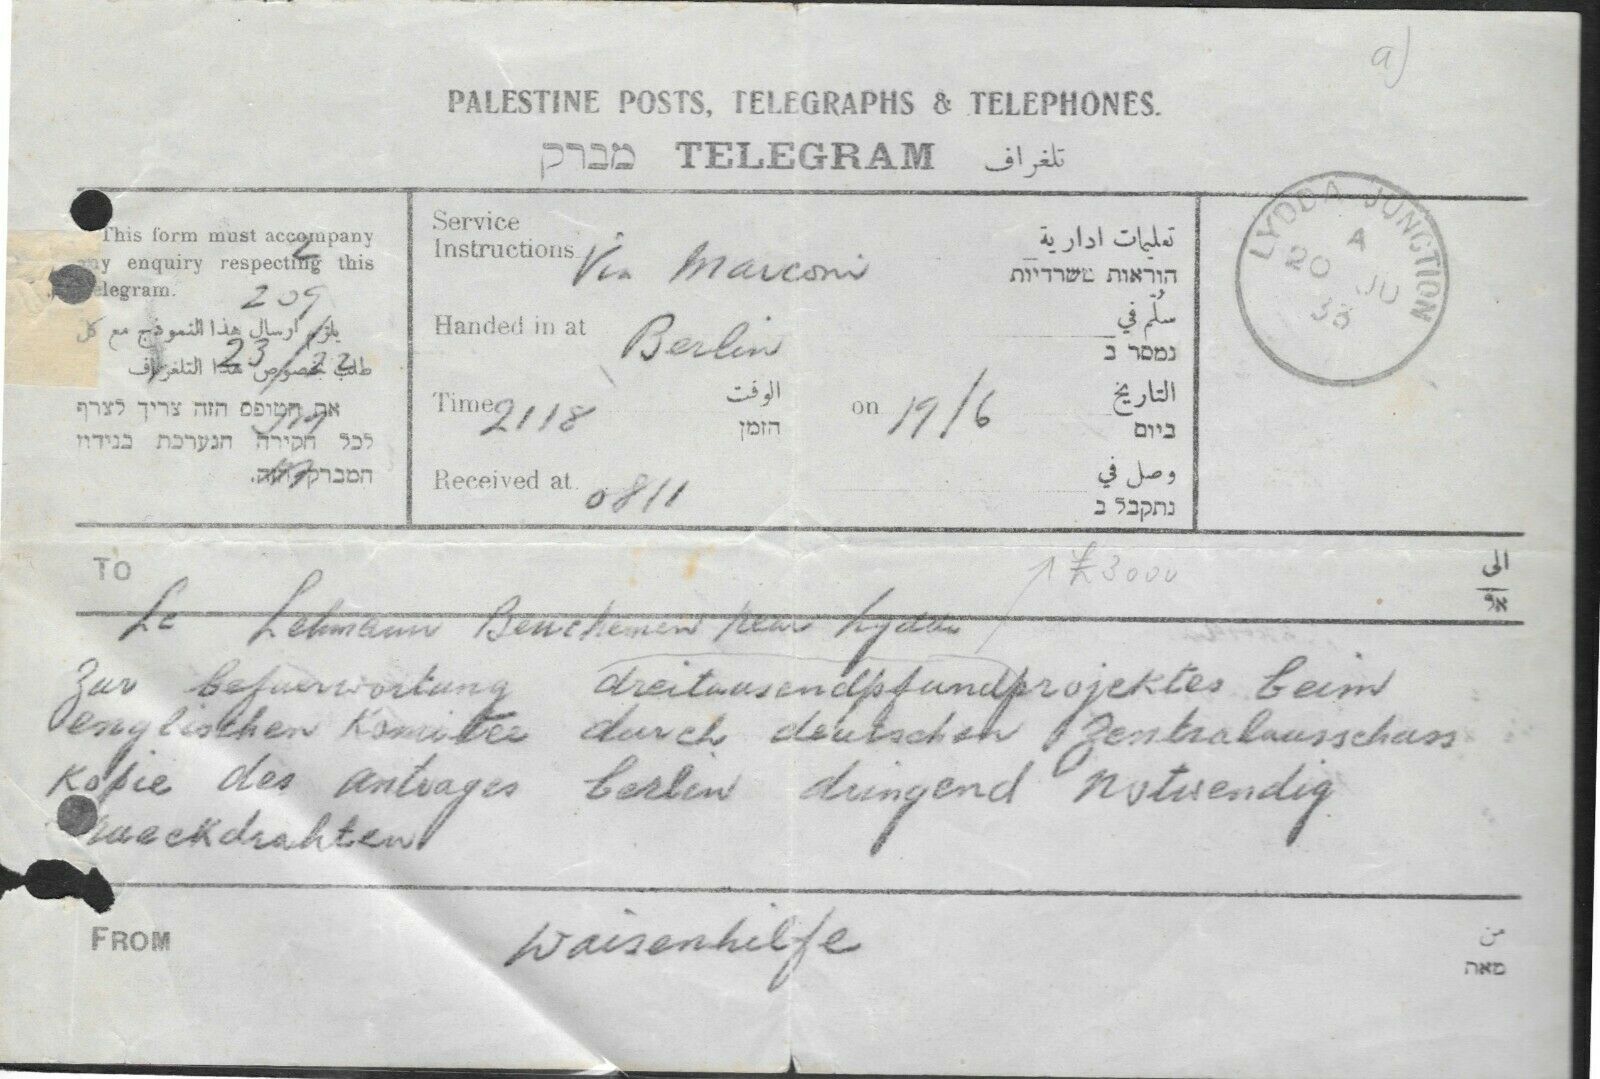 a)
PALESTINE POSTS, TELEGRAPHS & TELEPHONES.
מברק TELEGRAM تلغراف
This form must accompany
any enquiry respecting this
telegram.
يلزم ارسال هذا النموذج مع كل
طلب بخصوص هذا التلغراف
את הטופס הזה צריך לצרף
לכל חקירה הנערכת בנידון
המברק הזה.
2
209
23/22
Service
Instructions Via Marconi
تعليمات ادارية
הוראות משרדיות
Handed in at Berlin
سلّم في
נמסר ב
Time 2118 الوقت
הזמן
on 19/6 التاريخ
ביום
Received at 0811
وصل في
נתקבל ב
LYDDA JUNCTION
A
20 JU
33
TO
الى
אל
↑ £3000
Lc Lehmann Benschemen near Lydda
Zur befuerwortung dreitausendpfundprojektes beim
englischen Komitee durch deutschen Zentralausschuss
Kopie des antrages berlin dringend notwendig
rueckdrahten
FROM
Waisenhilfe
من
מאת